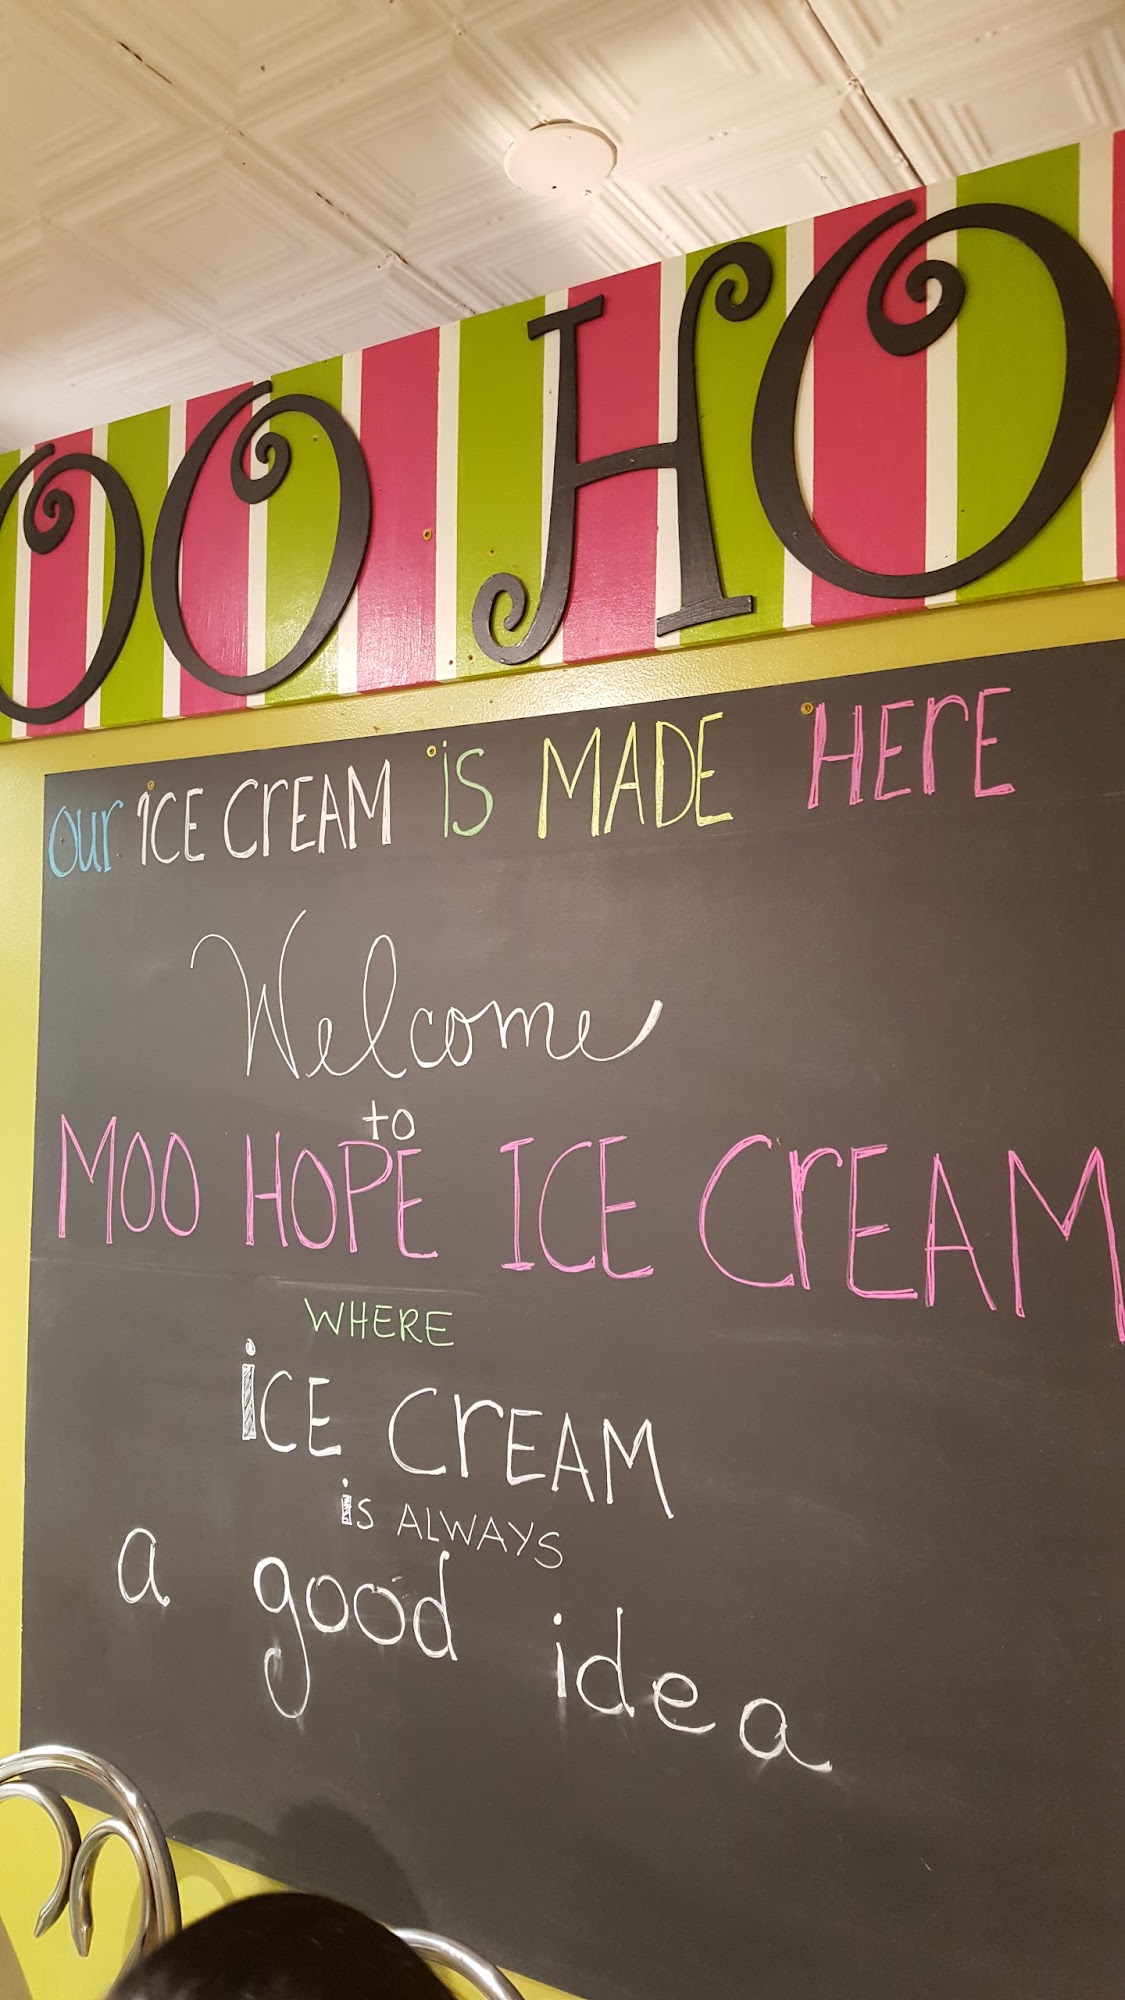 OO HO
our iCE CrEAM iS MADE HErE
Welcome
to
MOO HOPE ICE CrEAM
WHERE
iCE CrEAM
is ALWAYS
a good idea